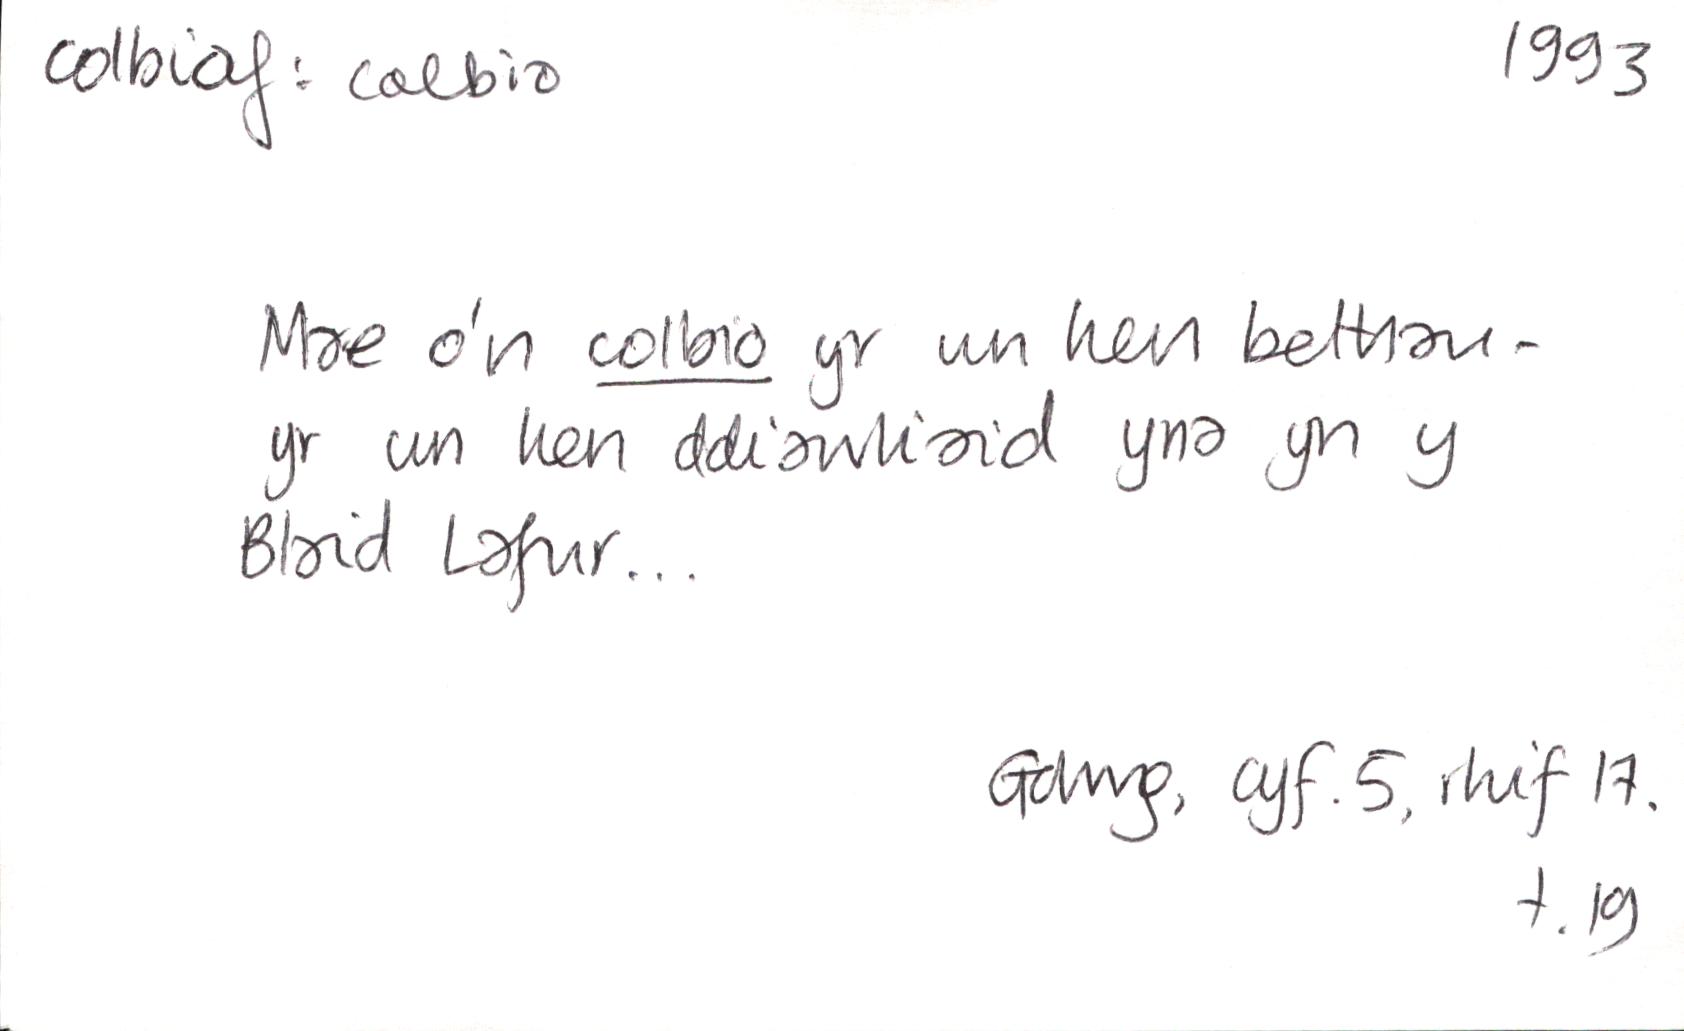 colbiaf: colbio 1993
Mae o'n colbio yr un hen bethau -
yr un hen ddiawliaid yna yn y
Blaid Lafur...
Golwg, cyf. 5, rhif 17.
t. 19